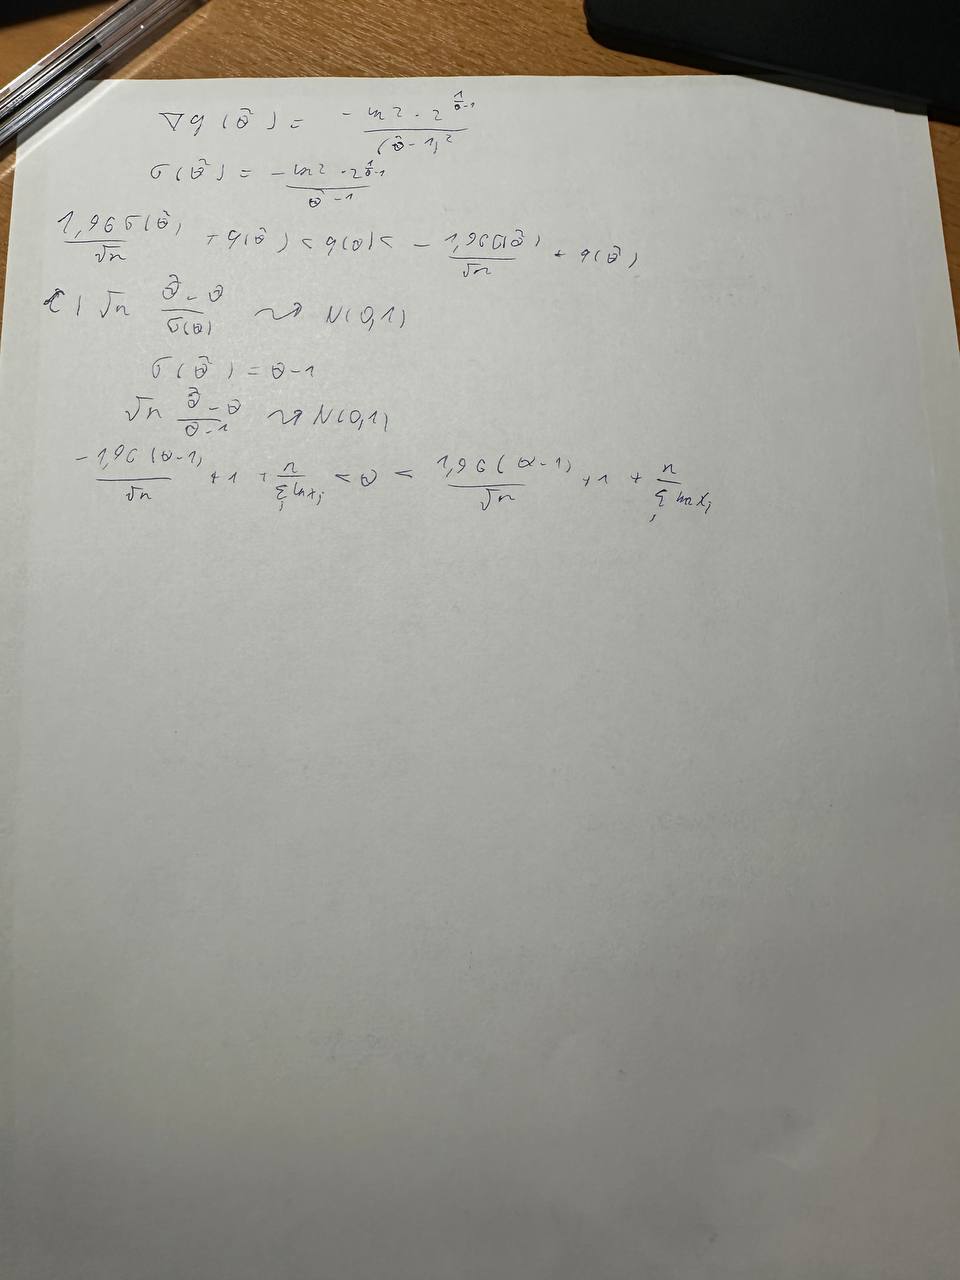 ∇g(θ̂) = - ln2 · 2^{1/(θ̂-1)} / (θ̂-1)²
σ(θ̂) = - ln2 · 2^{1/(θ̂-1)} / (θ̂-1)
1,96σ(θ̂)/√n + g(θ̂) < g(θ) < - 1,96σ(θ̂)/√n + g(θ̂)
c) √n (θ̂-θ)/σ(θ) ⇝ N(0,1)
σ(θ̂) = θ-1
√n (θ̂-θ)/(θ-1) ⇝ N(0,1)
-1,96(θ-1)/√n + 1 + n/Σᵢ ln xᵢ < θ < 1,96(θ-1)/√n + 1 + n/Σᵢ ln xᵢ